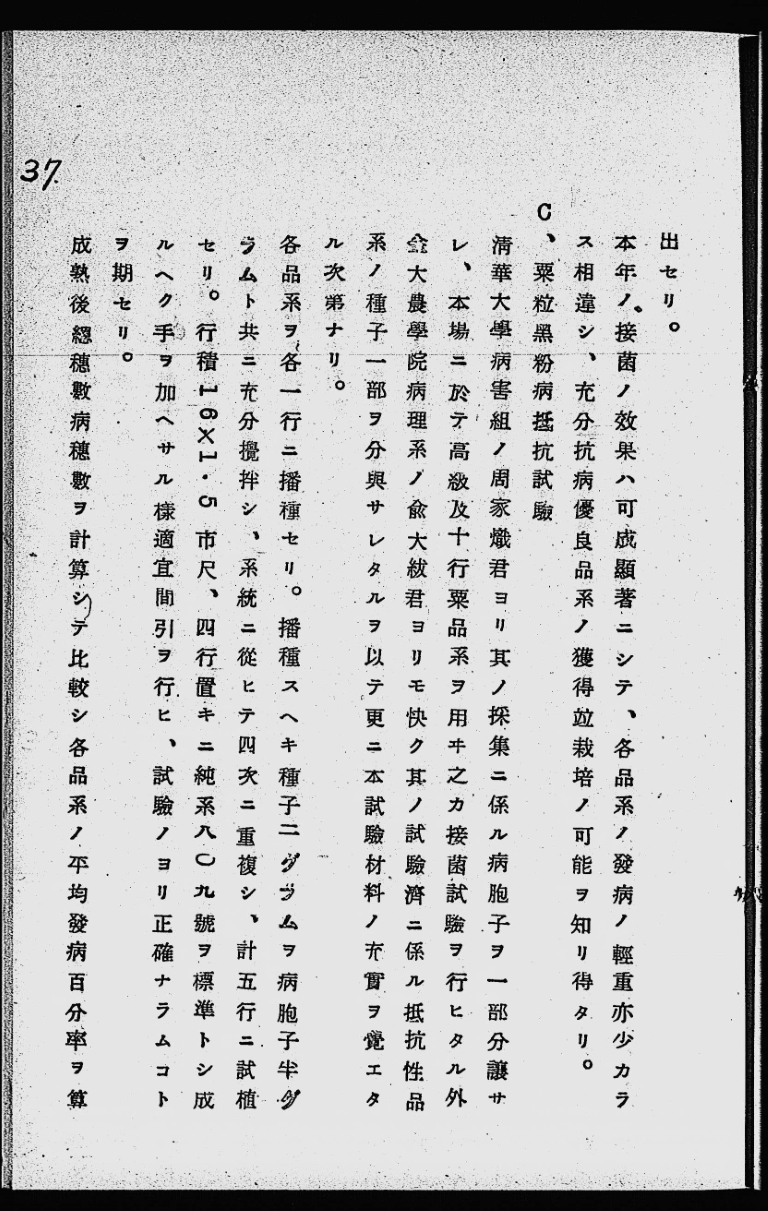 出セリ。
本年ノ接菌ノ效果ハ可成顯著ニシテ、各品系ノ發病ノ輕重亦少カラ
ス相違シ、充分抗病優良品系ノ獲得竝栽培ノ可能ヲ知リ得タリ。
C、粟粒黑粉病抵抗試驗
清華大學病害組ノ周家熾君ヨリ其ノ採集ニ係ル病胞子ヲ一部分讓サ
レ、本場ニ於テ高級及十行粟品系ヲ用ヰ之カ接菌試驗ヲ行ヒタル外
金大農學院病理系ノ兪大紱君ヨリモ快ク其ノ試驗濟ニ係ル抵抗性品
系ノ種子一部ヲ分與サレタルヲ以テ更ニ本試驗材料ノ充實ヲ覺エタ
ル次第ナリ。
各品系ヲ各一行ニ播種セリ。播種スヘキ種子二グラムヲ病胞子半グ
ラムト共ニ充分攪拌シ、系統ニ從ヒテ四次ニ重複シ、計五行ニ試植
セリ。行積16×1.5市尺、四行置キニ純系八〇九號ヲ標準トシ成
ルヘク手ヲ加ヘサル樣適宜間引ヲ行ヒ、試驗ノヨリ正確ナラムコト
ヲ期セリ。
成熟後總穗數病穗數ヲ計算シテ比較シ各品系ノ平均發病百分率ヲ算
37.